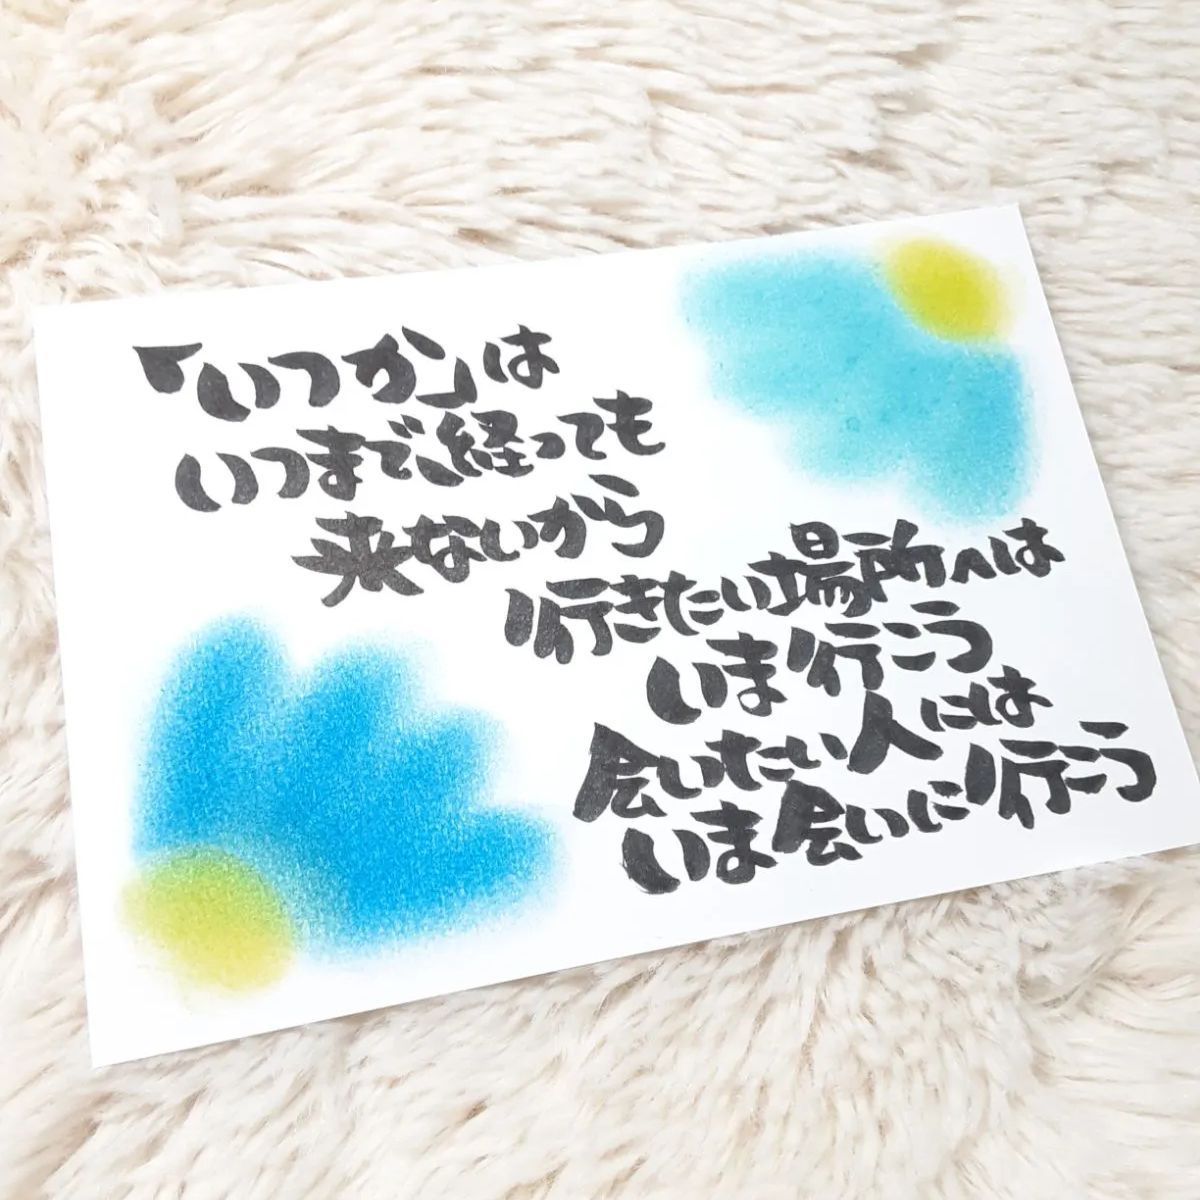 「いつか」は
いつまで経っても
来ないから
行きたい場所へは
いま行こう
会いたい人には
いま会いに行こう